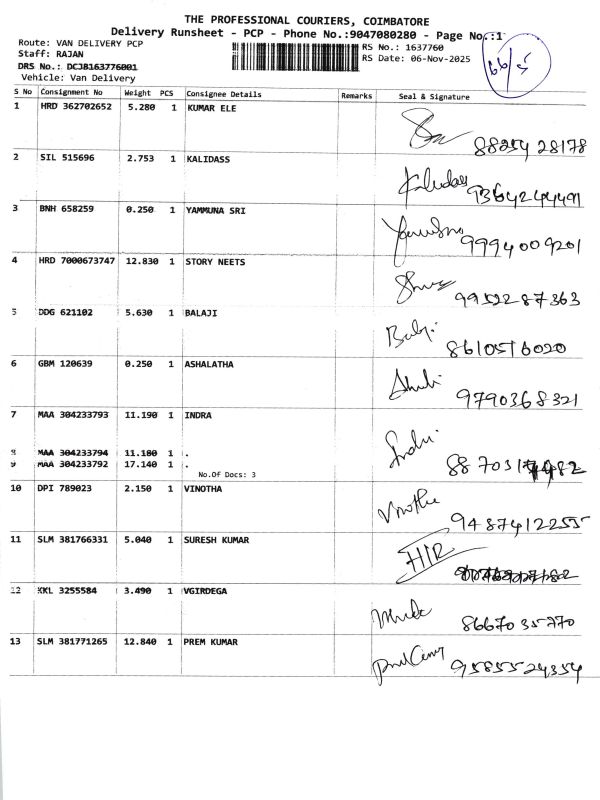 THE PROFESSIONAL COURIERS, COIMBATORE
Delivery Runsheet - PCP - Phone No.:9047080280 - Page No.:1
Route: VAN DELIVERY PCP
Staff: RAJAN
DRS No.: DCJB163776001
Vehicle: Van Delivery
RS No.: 1637760
RS Date: 06-Nov-2025
66/5
S No Consignment No Weight PCS Consignee Details Remarks Seal & Signature
1 HRD 362702652 5.280 1 KUMAR ELE
88254 28178
2 SIL 515696 2.753 1 KALIDASS
Kalidass 9364244491
3 BNH 658259 0.250 1 YAMMUNA SRI
9994009201
4 HRD 7000673747 12.830 1 STORY NEETS
9952287363
5 DDG 621102 5.630 1 BALAJI
Balaji 8610516020
6 GBM 120639 0.250 1 ASHALATHA
9790368321
7 MAA 304233793 11.190 1 INDRA
Indra
8 MAA 304233794 11.180 1 .
9 MAA 304233792 17.140 1 .
No.Of Docs: 3
10 DPI 789023 2.150 1 VINOTHA
Vinotha 9487412255
11 SLM 381766331 5.040 1 SURESH KUMAR
12 KKL 3255584 3.490 1 VGIRDEGA
8667035770
13 SLM 381771265 12.840 1 PREM KUMAR
9585524354